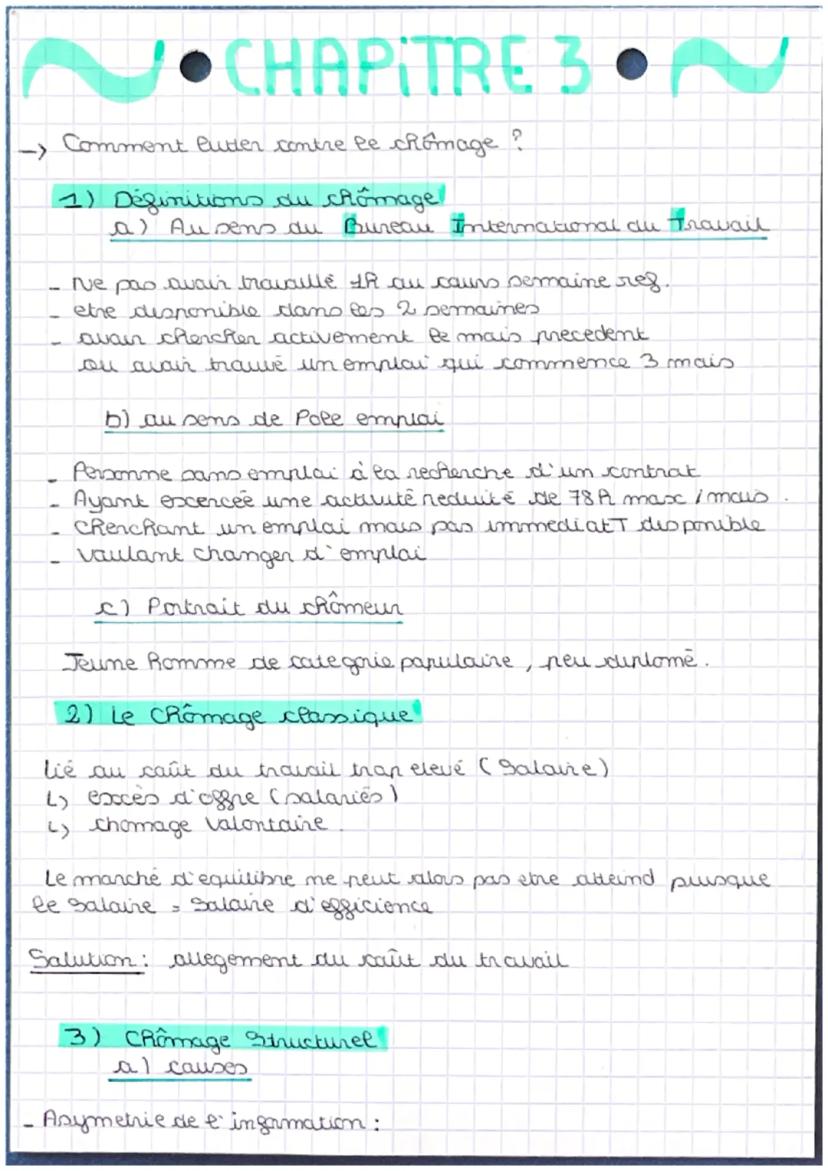 CHAPiTRE 3
-> Comment lutter contre le chômage ?
1) Définitions du chômage
a) Au sens du Bureau International du Travail
- Ne pas avoir travaillé 1h au cours semaine ref.
- etre disponible dans les 2 semaines
- avoir chercher activement le mois precedent
ou avoir trouvé un emploi qui commence 3 mois
b) au sens de Pole emploi
- Personne sans emploi à la recherche d'un contrat
- Ayant excercée une activité reduite de 78h max / mois.
- Cherchant un emploi mais pas immediatT disponible
- Voulant changer d'emploi
c) Portrait du chômeur
Jeune homme de categorie populaire, peu diplomé.
2) Le Chômage classique
lié au coût du travail trop elevé (Salaire)
↳ excès d'offre (salariés)
↳ chomage Volontaire.
Le marché d'equilibre ne peut alors pas etre atteind puisque
le salaire = salaire d'efficience
Solution : allegement du coût du travail
3) Chômage Structurel
a) causes
- Asymetrie de l'information :